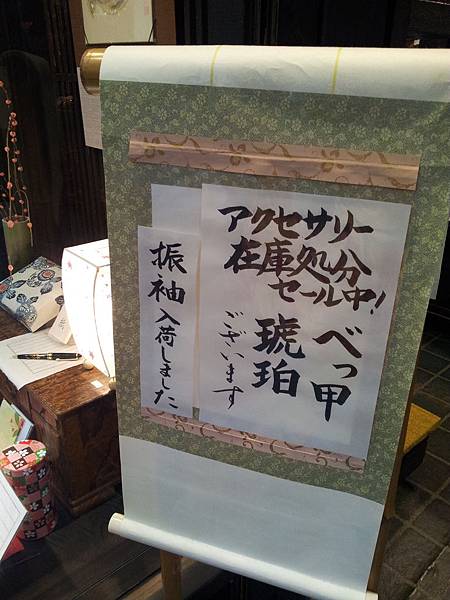 アクセサリー
在庫処分
セール中!
べっ甲
琥珀
ございます
振袖入荷しました